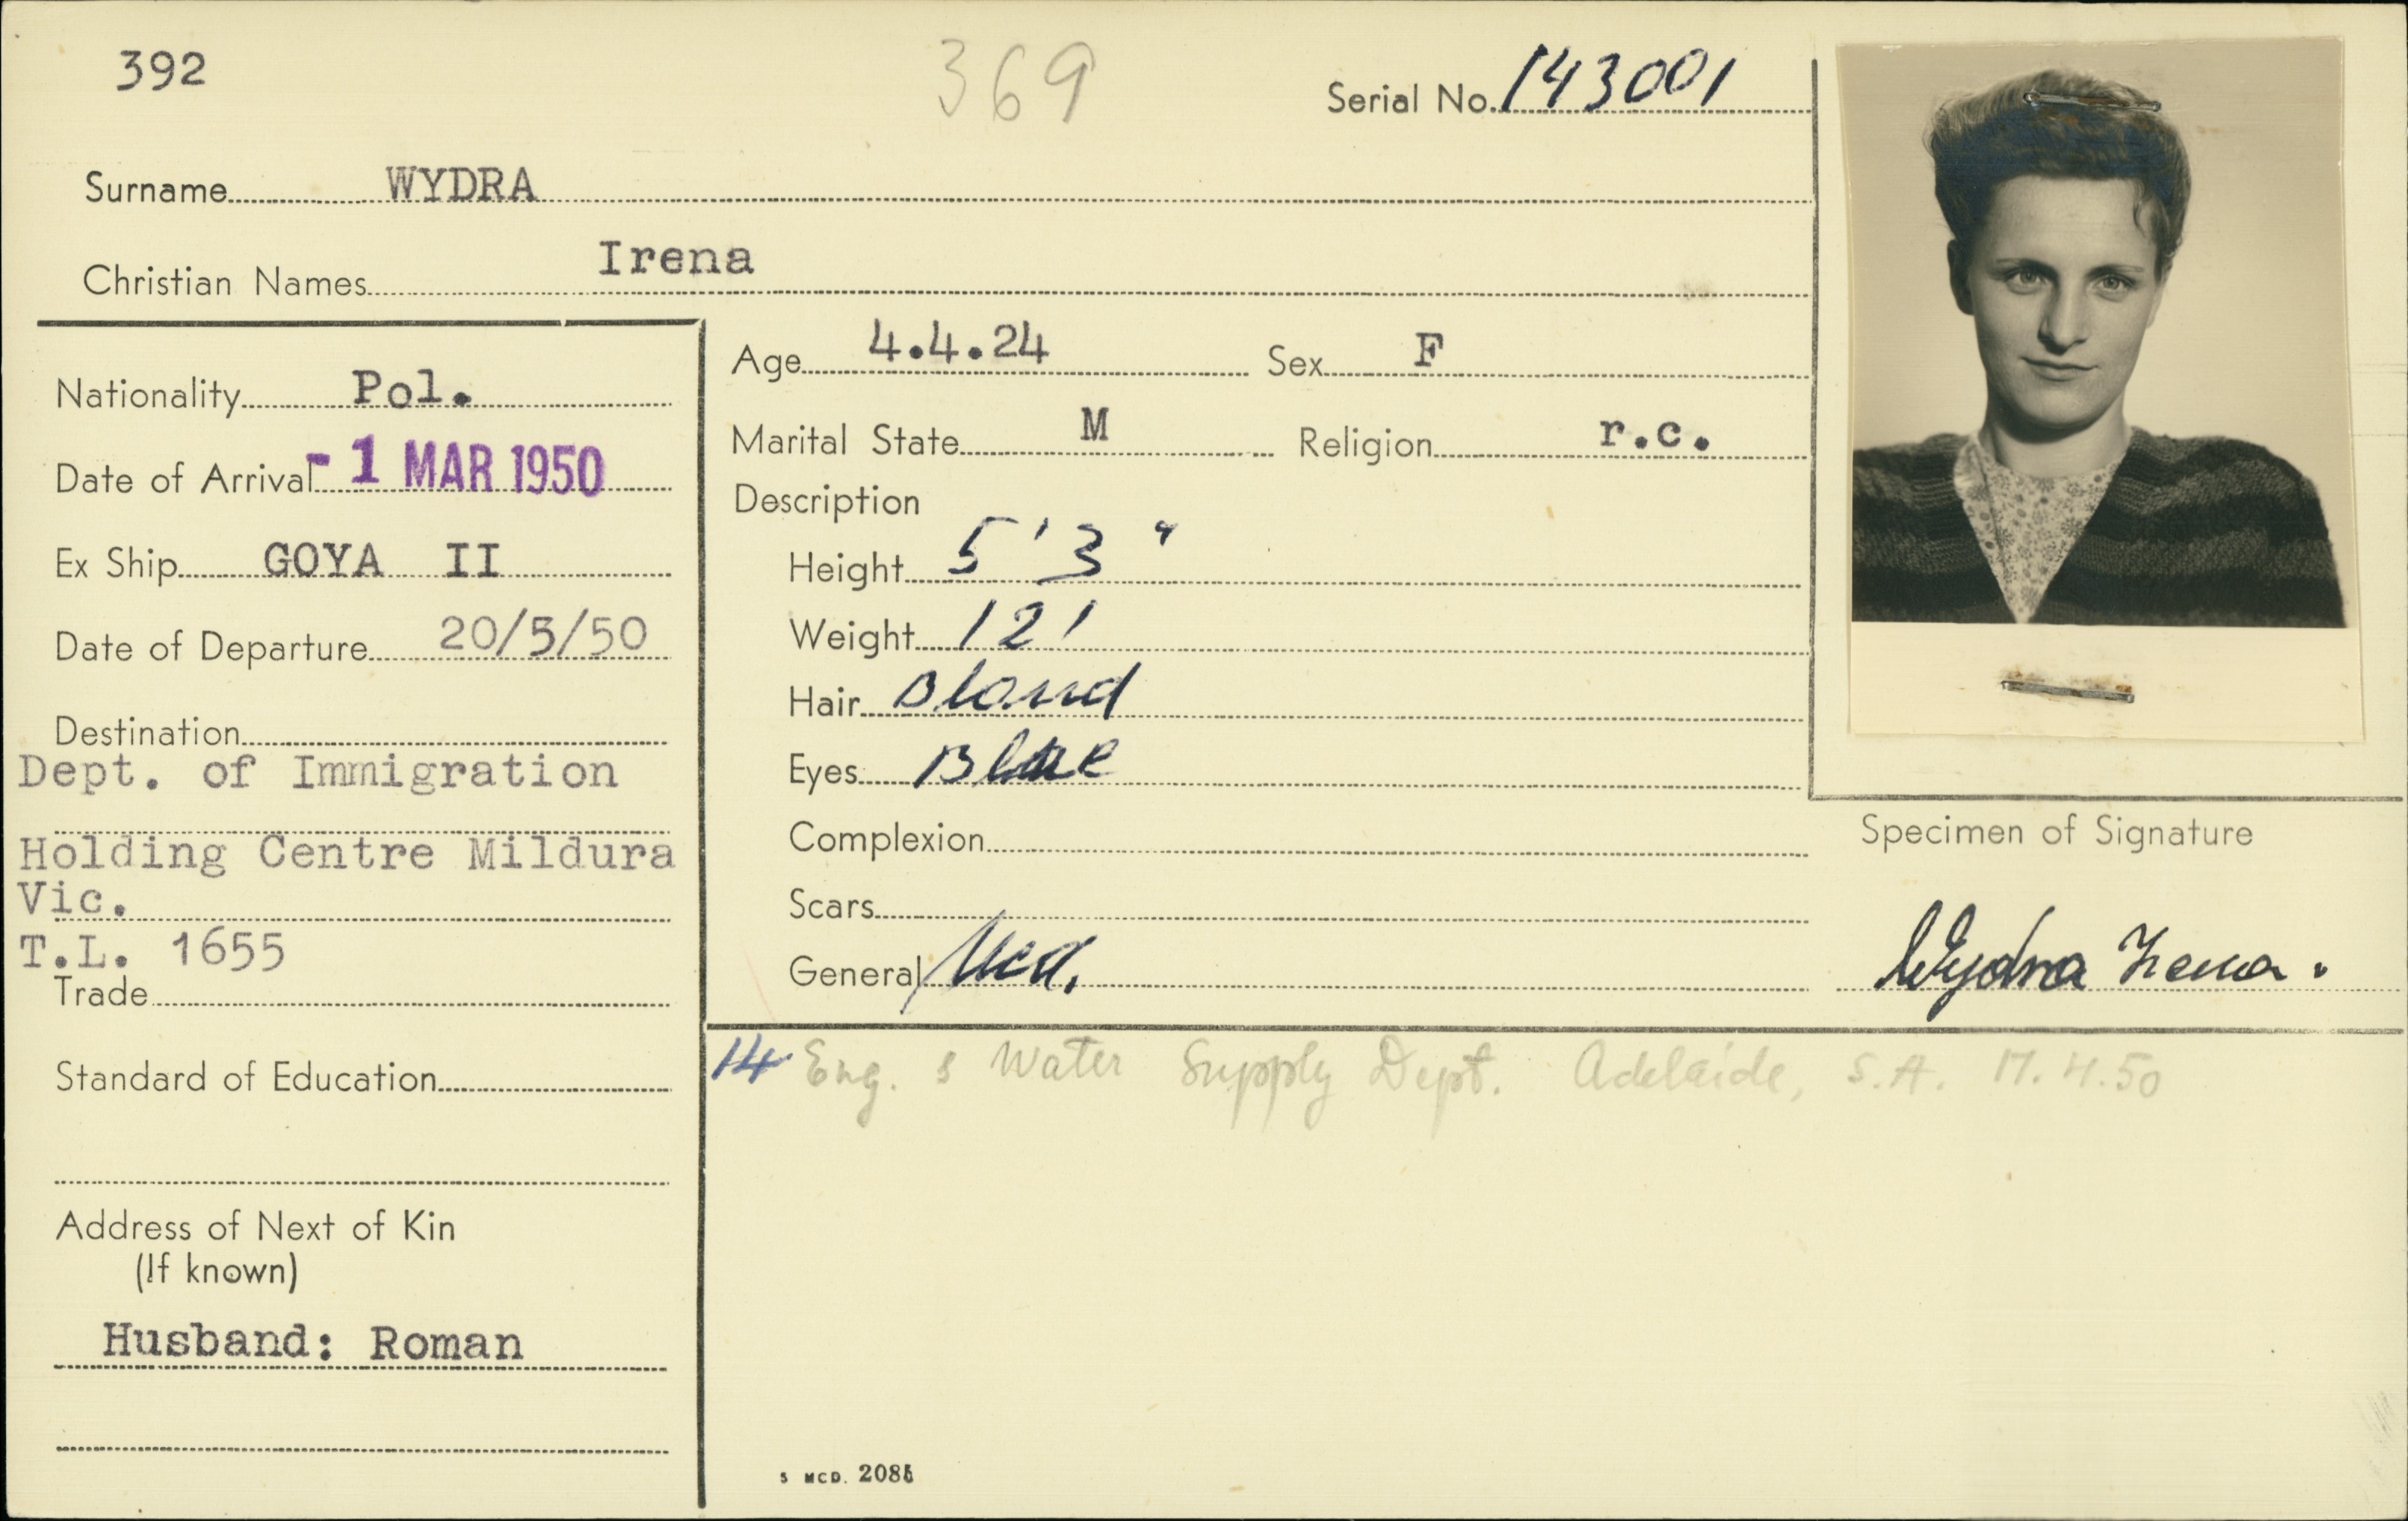 392
369
Serial No. 143001
Surname WYDRA
Christian Names Irena
Nationality Pol.
Date of Arrival - 1 MAR 1950
Ex Ship GOYA II
Date of Departure 20/5/50
Destination
Dept. of Immigration
Holding Centre Mildura
Vic.
T.L. 1655
Trade
Standard of Education
Address of Next of Kin
(If known)
Husband: Roman
Age 4.4.24 Sex F
Marital State M Religion r.c.
Description
Height 5'3"
Weight 121
Hair Blond
Eyes Blue
Complexion
Scars
General Med.
Specimen of Signature
Wydra Irena.
14 Eng. & Water Supply Dept. Adelaide, S.A. 17.4.50
S MCD.